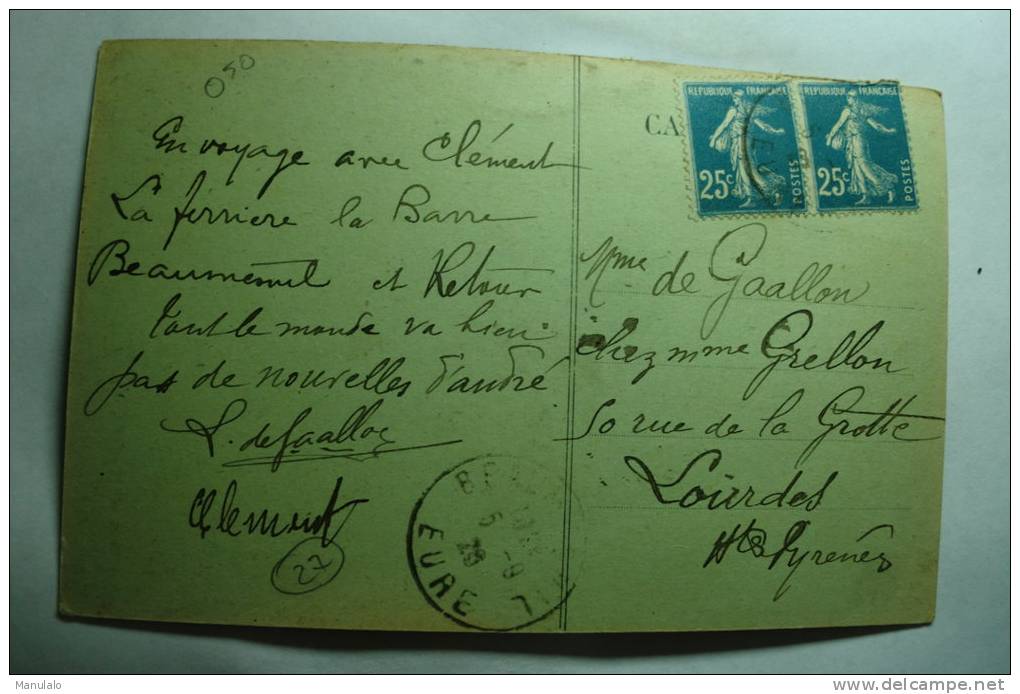 0 50
En voyage avec Clément
La ferriere la Barre
Beaumesnil et Retour
tout le monde va bien
pas de nouvelles d'andré
L. de Gaallon
Clement
27
CA
REPUBLIQUE FRANÇAISE
25c
POSTES
REPUBLIQUE FRANÇAISE
25c
POSTES
Mme de Gaallon
chez mme Grellon
50 rue de la Grotte
Lourdes
Htes Pyrenées
EURE
Manulalo
www.delcampe.net